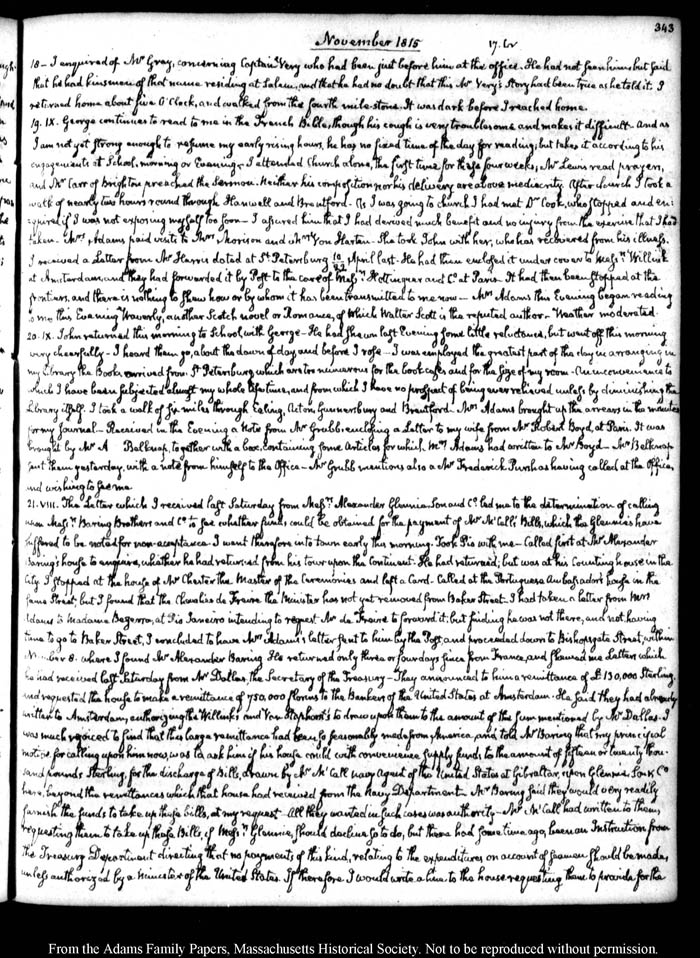 343
November 1815
17. IV
18 – I enquired of Mr Gray, concerning Captain Very who had been just before him at the office. He had not seen him but said
that he had kinsmen of that name residing at Salem, and that he had no doubt that this Mr Very's Story had been true as he told it. I
returned home about five O'Clock, and walked from the fourth mile-stone. It was dark before I reached home.
19. IX. George continues to read to me in the French Bible, though his cough is very troublesome and makes it difficult – And as
I am not yet strong enough to resume my early rising hours, he has no fixed time of the day for reading, but takes it according to his
engagements at School, morning or Evening – I attended Church alone, the first time for these four weeks; Mr Lewis read prayers,
and Mr Carr of Brighton preached the Sermon. Neither his composition nor his delivery are above mediocrity. After Church I took a
walk of nearly two hours round through Hanwell and Brentford. As I was going to church I had met Dr Cook, who stopped and en-
quired if I was not exposing myself too soon – I assured him that I had derived much benefit and no injury from the exercise that I had
taken. Mrs Adams paid visits to Mrs Morison and Mrs Von Harten. She took John with her, who has recovered from his illness.
I received a Letter from Mr Harris dated at St Petersburg 10/22 April last. He had then enclosed it under cover to Messrs Willink
at Amsterdam, and they had forwarded it by Post to the care of Messrs Hottinguer and Co at Paris. It had then been stopped at the
frontiers, and there is nothing to shew how or by whom it has been transmitted to me now – Mrs Adams this Evening began reading
to me this Evening Waverly, another Scotch novel or Romance, of which Walter Scott is the reputed author. Weather moderated.
20. IX. John returned this morning to School with George – He had shewn last Evening some little reluctance, but went off this morning
very cheerfully – I heard them go, about the dawn of day and before I rose – I was employed the greatest part of the day in arranging in
my Library the Books arrived from St Petersburg, which are too numerous for the book cases, and for the size of my room – An inconvenience to
which I have been subjected almost my whole life time, and from which I have no prospect of being ever relieved unless by diminishing the
Library itself. I took a walk of six miles through Ealing, Acton, Gunnersbury and Brentford. Mrs Adams brought up the arrears in the minutes
for my Journal – Received in the Evening a Note from Mr Grubb, enclosing a Letter to my wife from Mr Robert Boyd, at Paris. It was
brought by Mr A Belknap, together with a box, containing some Articles for which Mrs Adams had written to Mr Boyd – Mr Belknap
sent them yesterday, with a note from himself to the Office – Mr Grubb mentions also a Mr Frederick as having called at the Office,
and wishing to see me.
21. VIII. The Letter which I received last Saturday from Messrs Alexander Glennie, Son and Co led me to the determination of calling
upon Messrs Baring Brothers and Co to see whether funds could be obtained for the payment of Mr McCall's Bills, which the Glennies have
suffered to be noted for non-acceptance. I went therefore into town early this morning. Took with me – Called first at Mr Alexander
Baring's house to enquire, whether he had returned from his tour upon the Continent. He had returned; but was at his Counting house in the
City. I stopped at the house of Mr Chester the Master of the Ceremonies and left a Card. Called at the Portuguese Ambassador's house in the
same Street, but I found that the Chevalier de Freire the Minister has not yet removed from Baker Street. I had taken a letter from Mrs
Adams to Madame Bezerra, at Rio Janeiro intending to request Mr de Freire to forward it; but finding he was not there, and not having
time to go to Baker Street, I concluded to have Mrs Adams's letter sent to him by the Post, and proceeded down to Bishopsgate Street, within
Number 8. where I found Mr Alexander Baring. He returned only three or four days since from France, and shewed me Letters which
he had received last Saturday from Mr Dallas, the Secretary of the Treasury – They announced to him a remittance of £130,000 Sterling,
and requested the house to make a remittance of 750,000 florins to the Bankers of the United States at Amsterdam. He said they had already
written to Amsterdam, authorizing the Willinks and Van Staphorst's to draw upon them to the amount of the sum mentioned by Mr Dallas. I
was much rejoiced to find that this large remittance had been so seasonably made from America, and told Mr Baring that my principal
motive for calling upon him now, was to ask him if his house could with convenience supply funds to the amount of fifteen or twenty thou-
sand pounds Sterling, for the discharge of Bills, drawn by Mr McCall navy Agent of the United States at Gibraltar, upon Glennie Son & Co
here, beyond the remittances which that house had received from the Navy Department – Mr Baring said they would very readily
furnish the funds to take up these bills, at my request – All they wanted in such cases was authority – Mr McCall had written to them,
requesting them to take up these Bills, if Messrs Glennie, should decline so to do, but there had some time ago, been an Instruction from
the Treasury Department directing that no payments of this kind, relating to the expenditures on account of seamen should be made,
unless authorized by a Minister of the United States. If therefore I would write a line to the house requesting them to provide for the
From the Adams Family Papers, Massachusetts Historical Society. Not to be reproduced without permission.